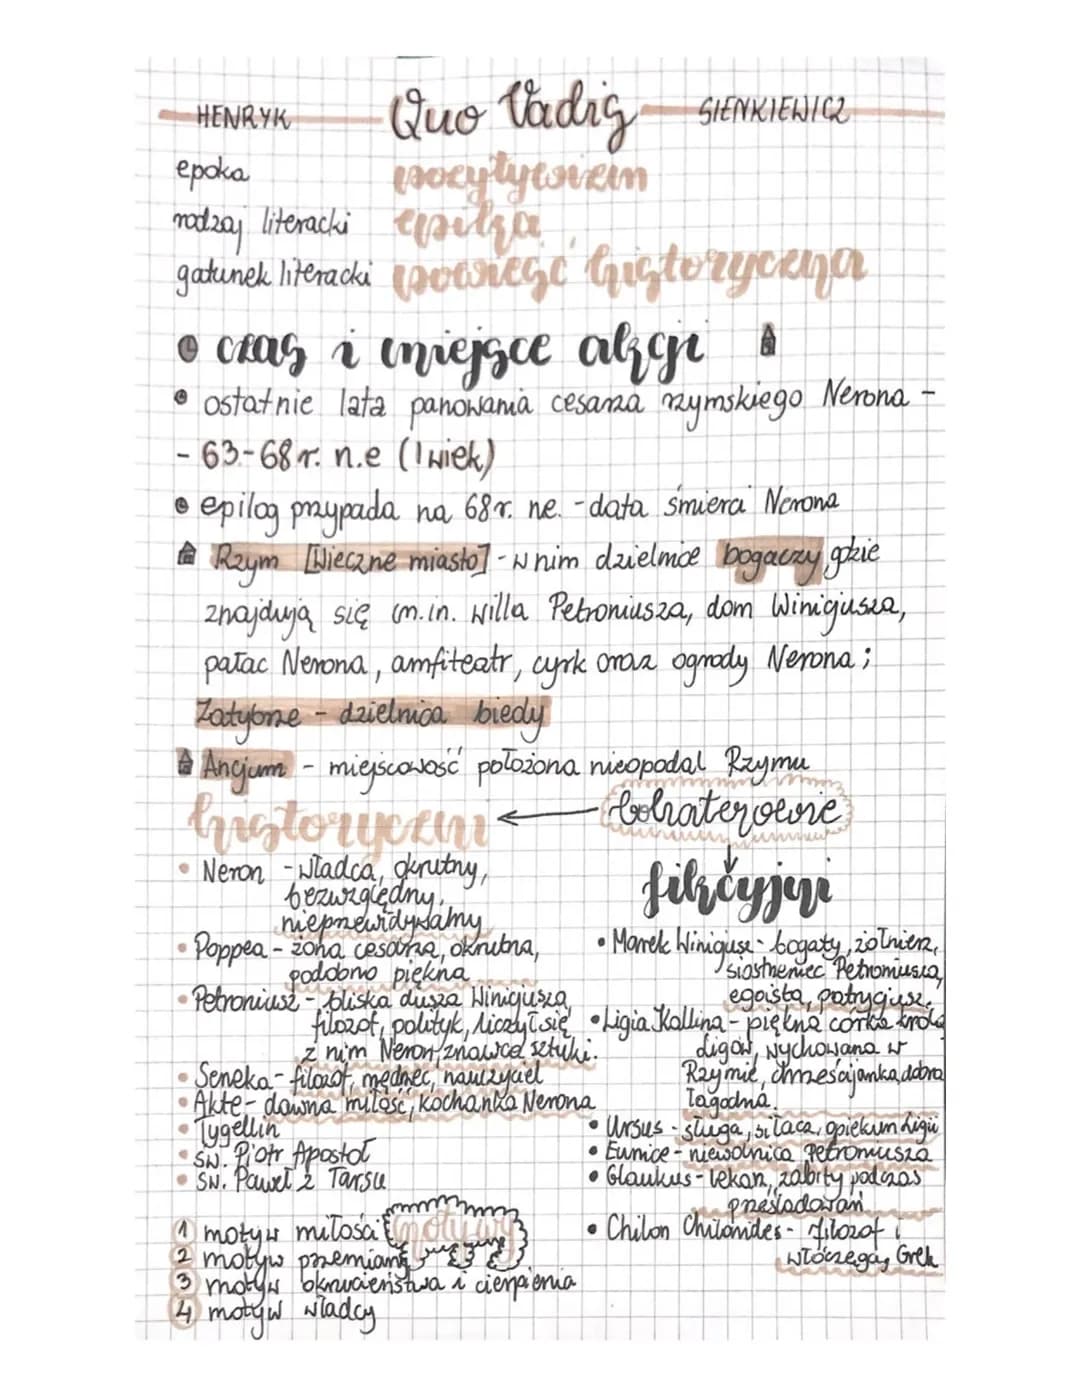 HENRYK Quo Vadis SIENKIEWICZ
epoka pozytywizm
rodzaj literacki epika
gatunek literacki powieść historyczna
czas i miejsce akcji
ostatnie lata panowania cesarza rzymskiego Nerona -
- 63-68 r. n.e (I wiek)
epilog przypada na 68 r. ne. - data śmierci Nerona
Rzym [Wieczne miasto] - w nim dzielnice bogaczy, gdzie
znajdują się m.in. willa Petroniusza, dom Winicjusza,
pałac Nerona, amfiteatr, cyrk oraz ogrody Nerona;
Zatybrze - dzielnica biedy
Ancjum - miejscowość położona nieopodal Rzymu
bohaterowie
historyczni
• Neron - władca, okrutny,
bezwzględny,
nieprzewidywalny
• Poppea - żona cesarza, okrutna,
podobno piękna
• Petroniusz - bliska dusza Winicjusza,
filozof, polityk, liczył się
z nim Neron, znawca sztuki.
• Seneka - filozof, mędrzec, nauczyciel
• Akte - dawna miłość, kochanka Nerona
• Tygellin
• św. Piotr Apostoł
• św. Paweł z Tarsu
fikcyjni
• Marek Winicjusz - bogaty, żołnierz,
siostrzeniec Petroniusza,
egoista, patrycjusz.
• Ligia Kallina - piękna córka króla
Ligów, wychowana w
Rzymie, chrześcijanka, dobra
łagodna.
• Ursus - sługa, siłacz, opiekun Ligii
• Eunice - niewolnica Petroniusza
• Glaukus - lekarz, zabity podczas
prześladowań
• Chilon Chilonides - filozof i
włóczęga, Grek
motywy
1 motyw miłości
2 motyw przemiany
3 motyw okrucieństwa i cierpienia
4 motyw władcy